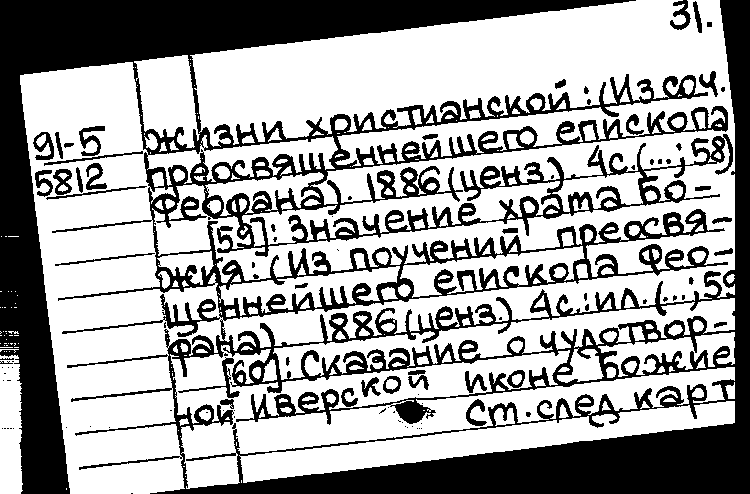 31.
91-5 жизни христианской : (Из соч.
5812 преосвященнейшего епископа
Феофана). 1886 (ценз.). 4с. (...; 58)
[59]: Значение храма Бо-
жия : (Из поучений преосвя-
щеннейшего епископа Фео-
фана). 1886 (ценз.) 4с.: ил. (...; 59
[60]: Сказание о чудотвор-
ной Иверской иконе Божие
См. след. карт